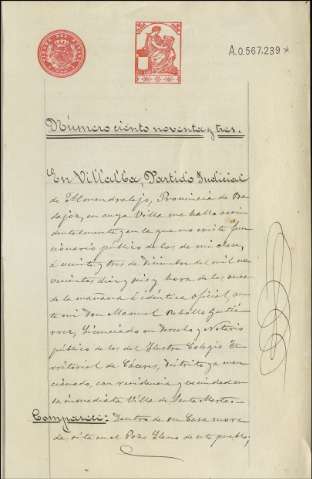 A.0.567.239*
Número ciento noventa y tres.
En Villalba, Partido Judicial
de Almendralejo, Provincia de Ba-
dajoz, en cuya Villa me hallo acci-
dentalmente y en la que no existe fun-
cionario público de los de mi clase,
á veinte y tres de Diciembre de mil no-
vecientos diez y seis y hora de las once
de la mañana é idéntica oficial, an-
te mi Don Manuel Gutié-
rrez, Licenciado en Derecho y Notario
público de los del Ilustre Colegio Te-
rritorial de Cáceres, distrito ya men-
cionado, con residencia y vecindad en
la inmediata Villa de Santa Marta.
Comparece: Dentro de su Casa mora-
da sita en el Pozo de este pueblo,